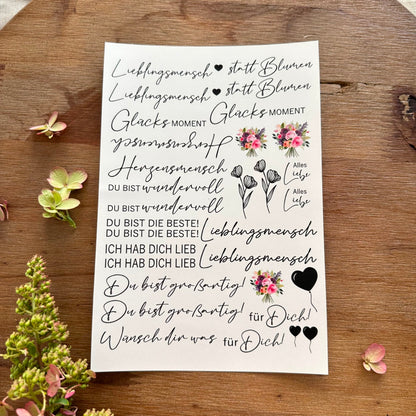 Lieblingsmensch statt Blumen
Lieblingsmensch statt Blumen
Glücks MOMENT Glücks MOMENT
Herzensmensch
Herzensmensch
DU BIST wundervoll
Alles Liebe
DU BIST wundervoll
Alles Liebe
DU BIST DIE BESTE! Lieblingsmensch
DU BIST DIE BESTE!
ICH HAB DICH LIEB Lieblingsmensch
ICH HAB DICH LIEB
Du bist großartig!
Du bist großartig! für Dich!
Wünsch dir was für Dich!